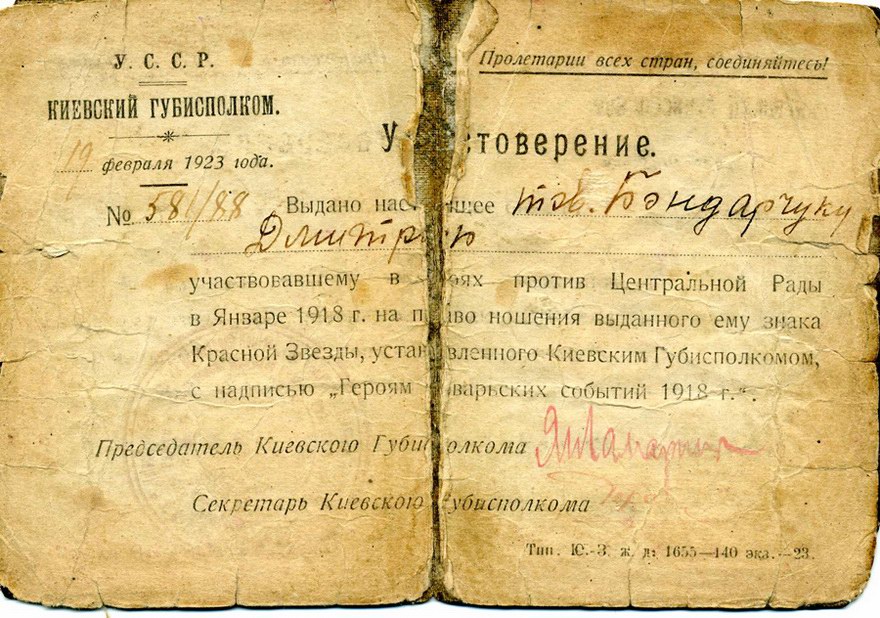 У. С. С. Р.
КИЕВСКИЙ ГУБИСПОЛКОМ.
19 февраля 1923 года.
№ 581/88
Пролетарии всех стран, соединяйтесь!
Удостоверение.
Выдано настоящее тов. Бондарчуку
Дмитрию
участвовавшему в боях против Центральной Рады
в Январе 1918 г. на право ношения выданного ему знака
Красной Звезды, установленного Киевским Губисполкомом,
с надписью „Героям Январьских событий 1918 г.“.
Председатель Киевского Губисполкома
Секретарь Киевского Губисполкома
Тип. Ю.-З. ж. д. 1655—140 экз.—23.